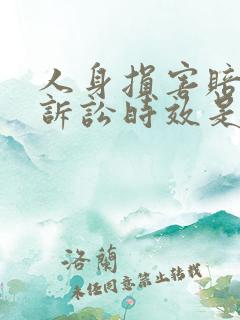 人身損害賠
訴訟時效是
洛蘭
未经同意禁止转载